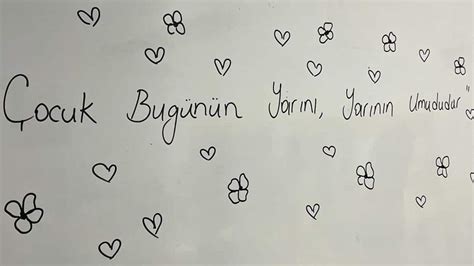 Çocuk Bugünün Yarını, Yarının Umududur"